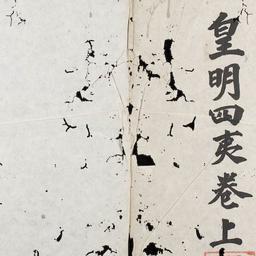 皇明四夷卷上